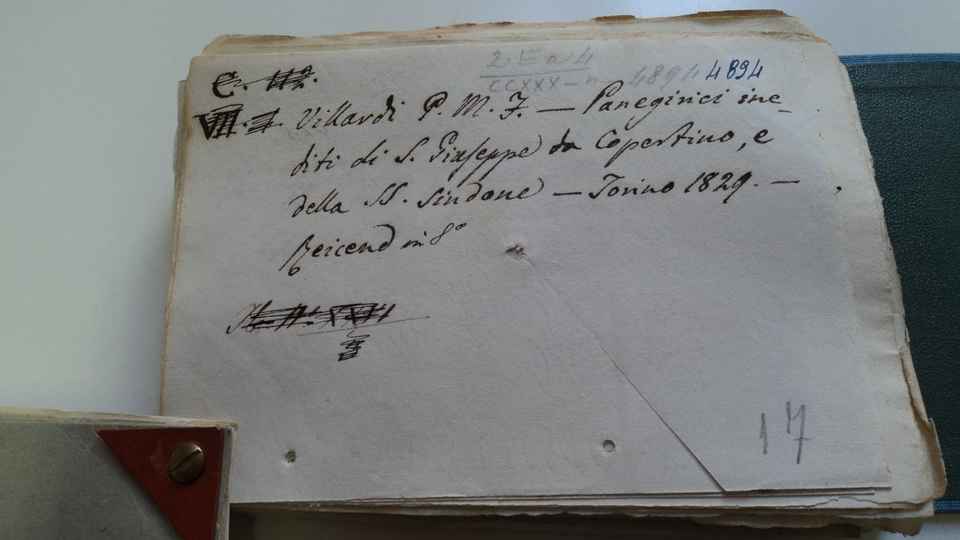 2 E n 4
CCXXX - n 4894 4894
C. 112.
VII. I. Villardi P. M. F. — Panegirici ine-
diti di S. Giuseppe da Copertino, e
della SS. Sindone — Torino 1829. —
in 8º
17